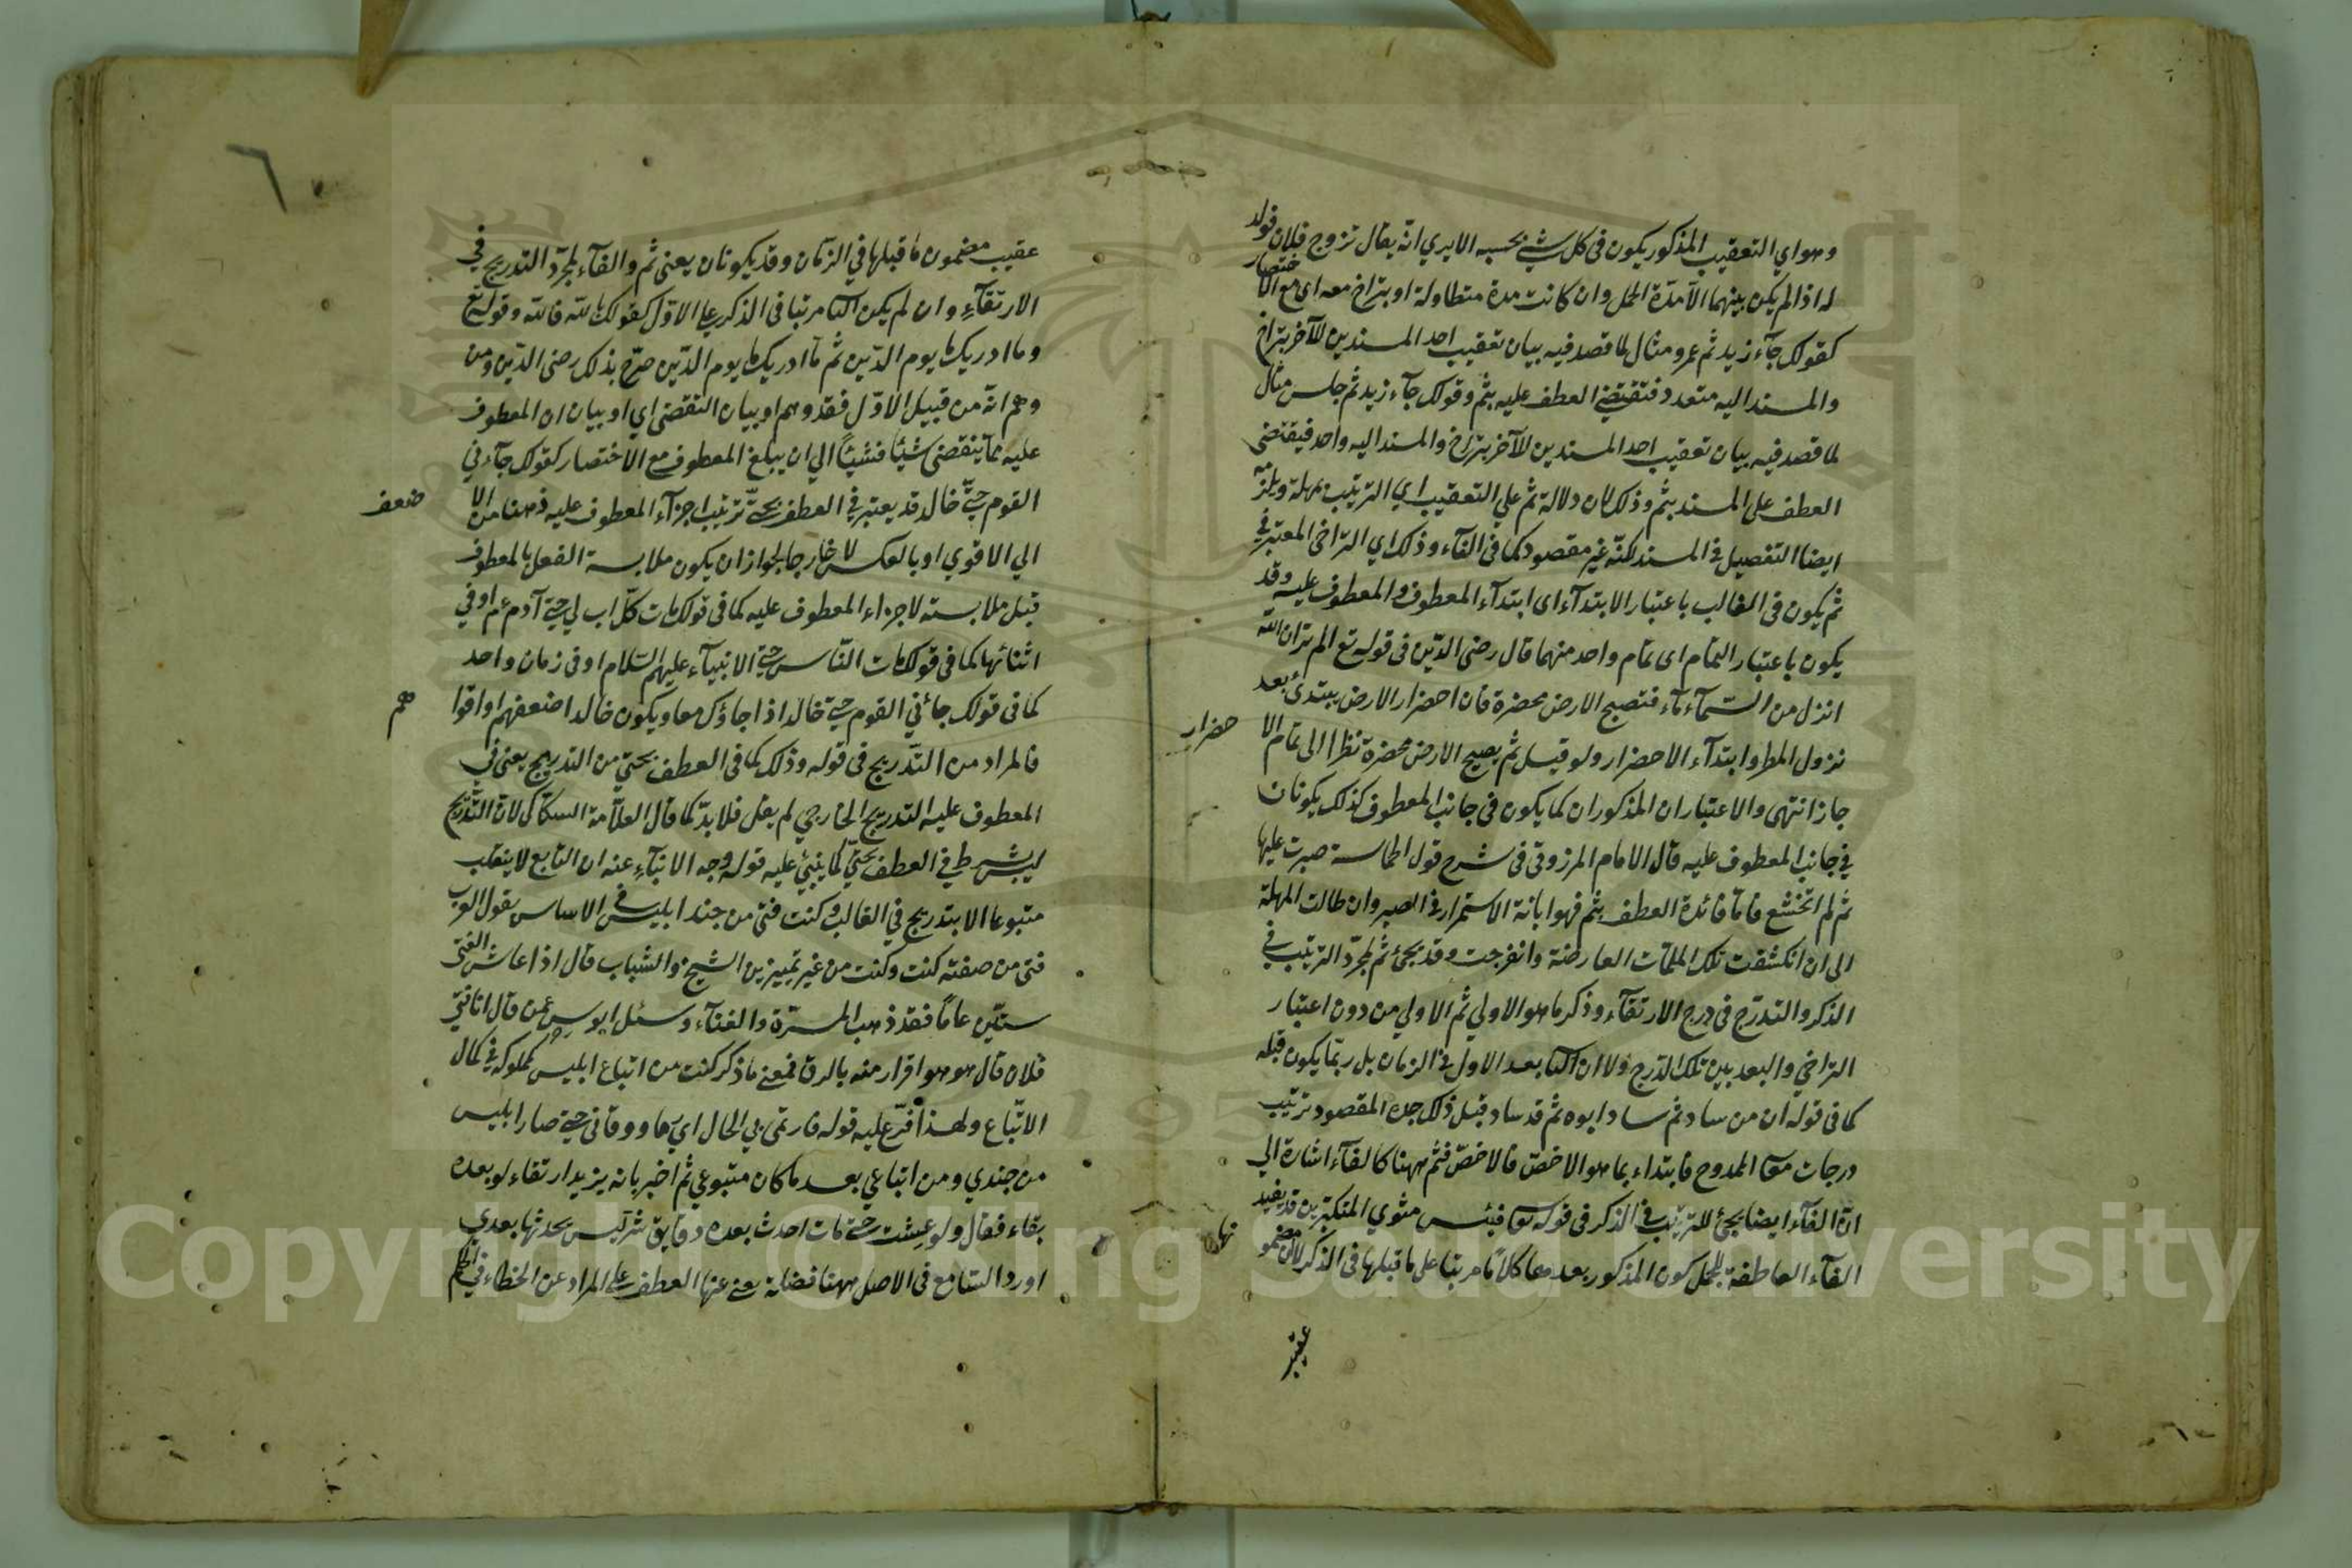 وهو اي التعقيب المذكور يكون فى كل شئ بحسبه الا يري انه يقال تزوج فلان فولد
له اذا لم يكن بينهما الا مدة الحمل وان كانت مدة متطاولة او بتراخ معه اى مع الاختصار
كقولك جآء زيد ثم عمرو مثال لما قصد فيه بيان تعقيب احد المسندين للآخر بتراخ
والمسند اليه متعدد فتقتضي العطف عليه بثم وقولك جآء زيد ثم جلس مثال
لما قصد فيه بيان تعقيب احد المسندين للآخر بتراخ والمسند اليه واحد فيقتضى
العطف على المسند بثم وذلك لان دلالة ثم علي التعقيب اي الترتيب بمهلة ويلزمه
ايضا التفصيل في المسند لكنه غير مقصود كما فى الفآء وذلك اي التراخى المعتبر في
ثم يكون فى الغالب باعتبار الابتدآء اى ابتدآء المعطوف والمعطوف عليه وقد
يكون باعتبار التمام اى تمام واحد منهما قال رضى الدين فى قوله تع الم تر ان الله
انزل من السمآء مآء فتصبح الارض مخضرة فان اخضرار الارض يبتدئ بعد
نزول المطر وابتدآء الاخضرار ولو قيل ثم يصبح الارض مخضرة نظرا الى تمام الا
خضرار
جاز انتهى والاعتباران المذكوران كما يكون فى جانب المعطوف كذلك يكونان
في جانب المعطوف عليه قال الامام المرزوقى فى شرح قول الحماسة صبرت عليها
ثم لم اتخشع فاما فائدة العطف بثم فهو ابانة الاستمرار في الصبر وان طالت المهلة
الى ان انكشفت تلك الملمات العارضة وانفرجت وقد يجئ ثم لمجرد الترتيب في
الذكر والتدرج فى درج الارتقآء وذكر ما هو الاولي ثم الاولي من دون اعتبار
التراخي والبعد بين تلك الدرج ولا ان الثا بعد الاول في الزمان بل ربما يكون قبله
كما فى قوله ان من ساد ثم ساد ابوه ثم قد ساد قبل ذلك جده المقصود ترتيب
درجات معا الممدوح فابتداء بما هو الاخص فالاخص فثم ههنا كالفآء اشارة الي
ان الفآء ايضا يجئ للترتيب في الذكر فى قوله تعا فبئس مثوي المتكبرين قد يفيد
الفآء العاطفة للجمل كون المذكور بعدها كلاما مرتبا على ما قبلها فى الذكر لا ان مضمو
نها
عقيب
عقيب مضمون ما قبلها في الزمان وقد يكونان يعنى ثم والفآء لمجرد التدريج في
الارتقآء وان لم يكن الثا مرتبا فى الذكر علي الاول كقولك بالله فالله وقوله تع
وما ادريك ما يوم الدين ثم ما ادريك ما يوم الدين صرح بذلك رضى الدين ومن
وهم انه من قبيل الاول فقد وهم او بيان التقضى اي او بيان ان المعطوف
عليه مما يتقضى شيئا فشيئا الي ان يبلغ المعطوف مع الاختصار كقولك جآءني
القوم حتى خالد قد يعتبر في العطف بحتى ترتيب اجزآء المعطوف عليه ذهنا من الا
ضعف
الي الاقوي او بالعكس لا خارجا لجواز ان يكون ملابسة الفعل بالمعطوف
قبل ملابسته لاجزاء المعطوف عليه كما فى قولك مات كل اب لي حتى آدم عم او في
اثنائها كما فى قولك مات الناس حتى الانبيآء عليهم السلام او فى زمان واحد
كما فى قولك جائني القوم حتى خالد اذا جاؤك معا ويكون خالد اضعفهم او اقوا
هم
فالمراد من التدريج فى قوله وذلك كما فى العطف بحتى من التدريج يعنى في
المعطوف عليه التدريج الخارجي لم يقل فلا بد كما قال العلامة السكاكى لان التدريج
ليس شرط في العطف بحتى كما ينبئ عليه قوله وجه الانبآء عنه ان التابع لا ينقلب
متبوعا الا بتدريج في الغالب وكنت فتى من جند ابليس في الاساس يقول العرب
فتى من صفته كنت وكنت من غير تمييز بين الشيخ والشباب قال اذا عاش الفتى
ستين عاما فقد ذهب المسرة والفنآء وسئل ابو س عمن قال انا فتى
فلان قال هو هو اقرار منه بالرق فمعنى ما ذكر كنت من اتباع ابليس كمملوكه في كمال
الاتباع ولهذا فرع عليه قوله فارتمى بي الحال اي وقانى حتى صار ابليس
من جندي ومن اتباعي بعد ما كان متبوعي ثم اخبر بانه يزيد ارتقاء لو بعده
بقاء فقال ولو عشت حتى مات احدث بعده دقايق شر ليس يحدثها بعدي
اورد السامع فى الاصل ههنا العطف علي المراد عن الخطاء في الحكم